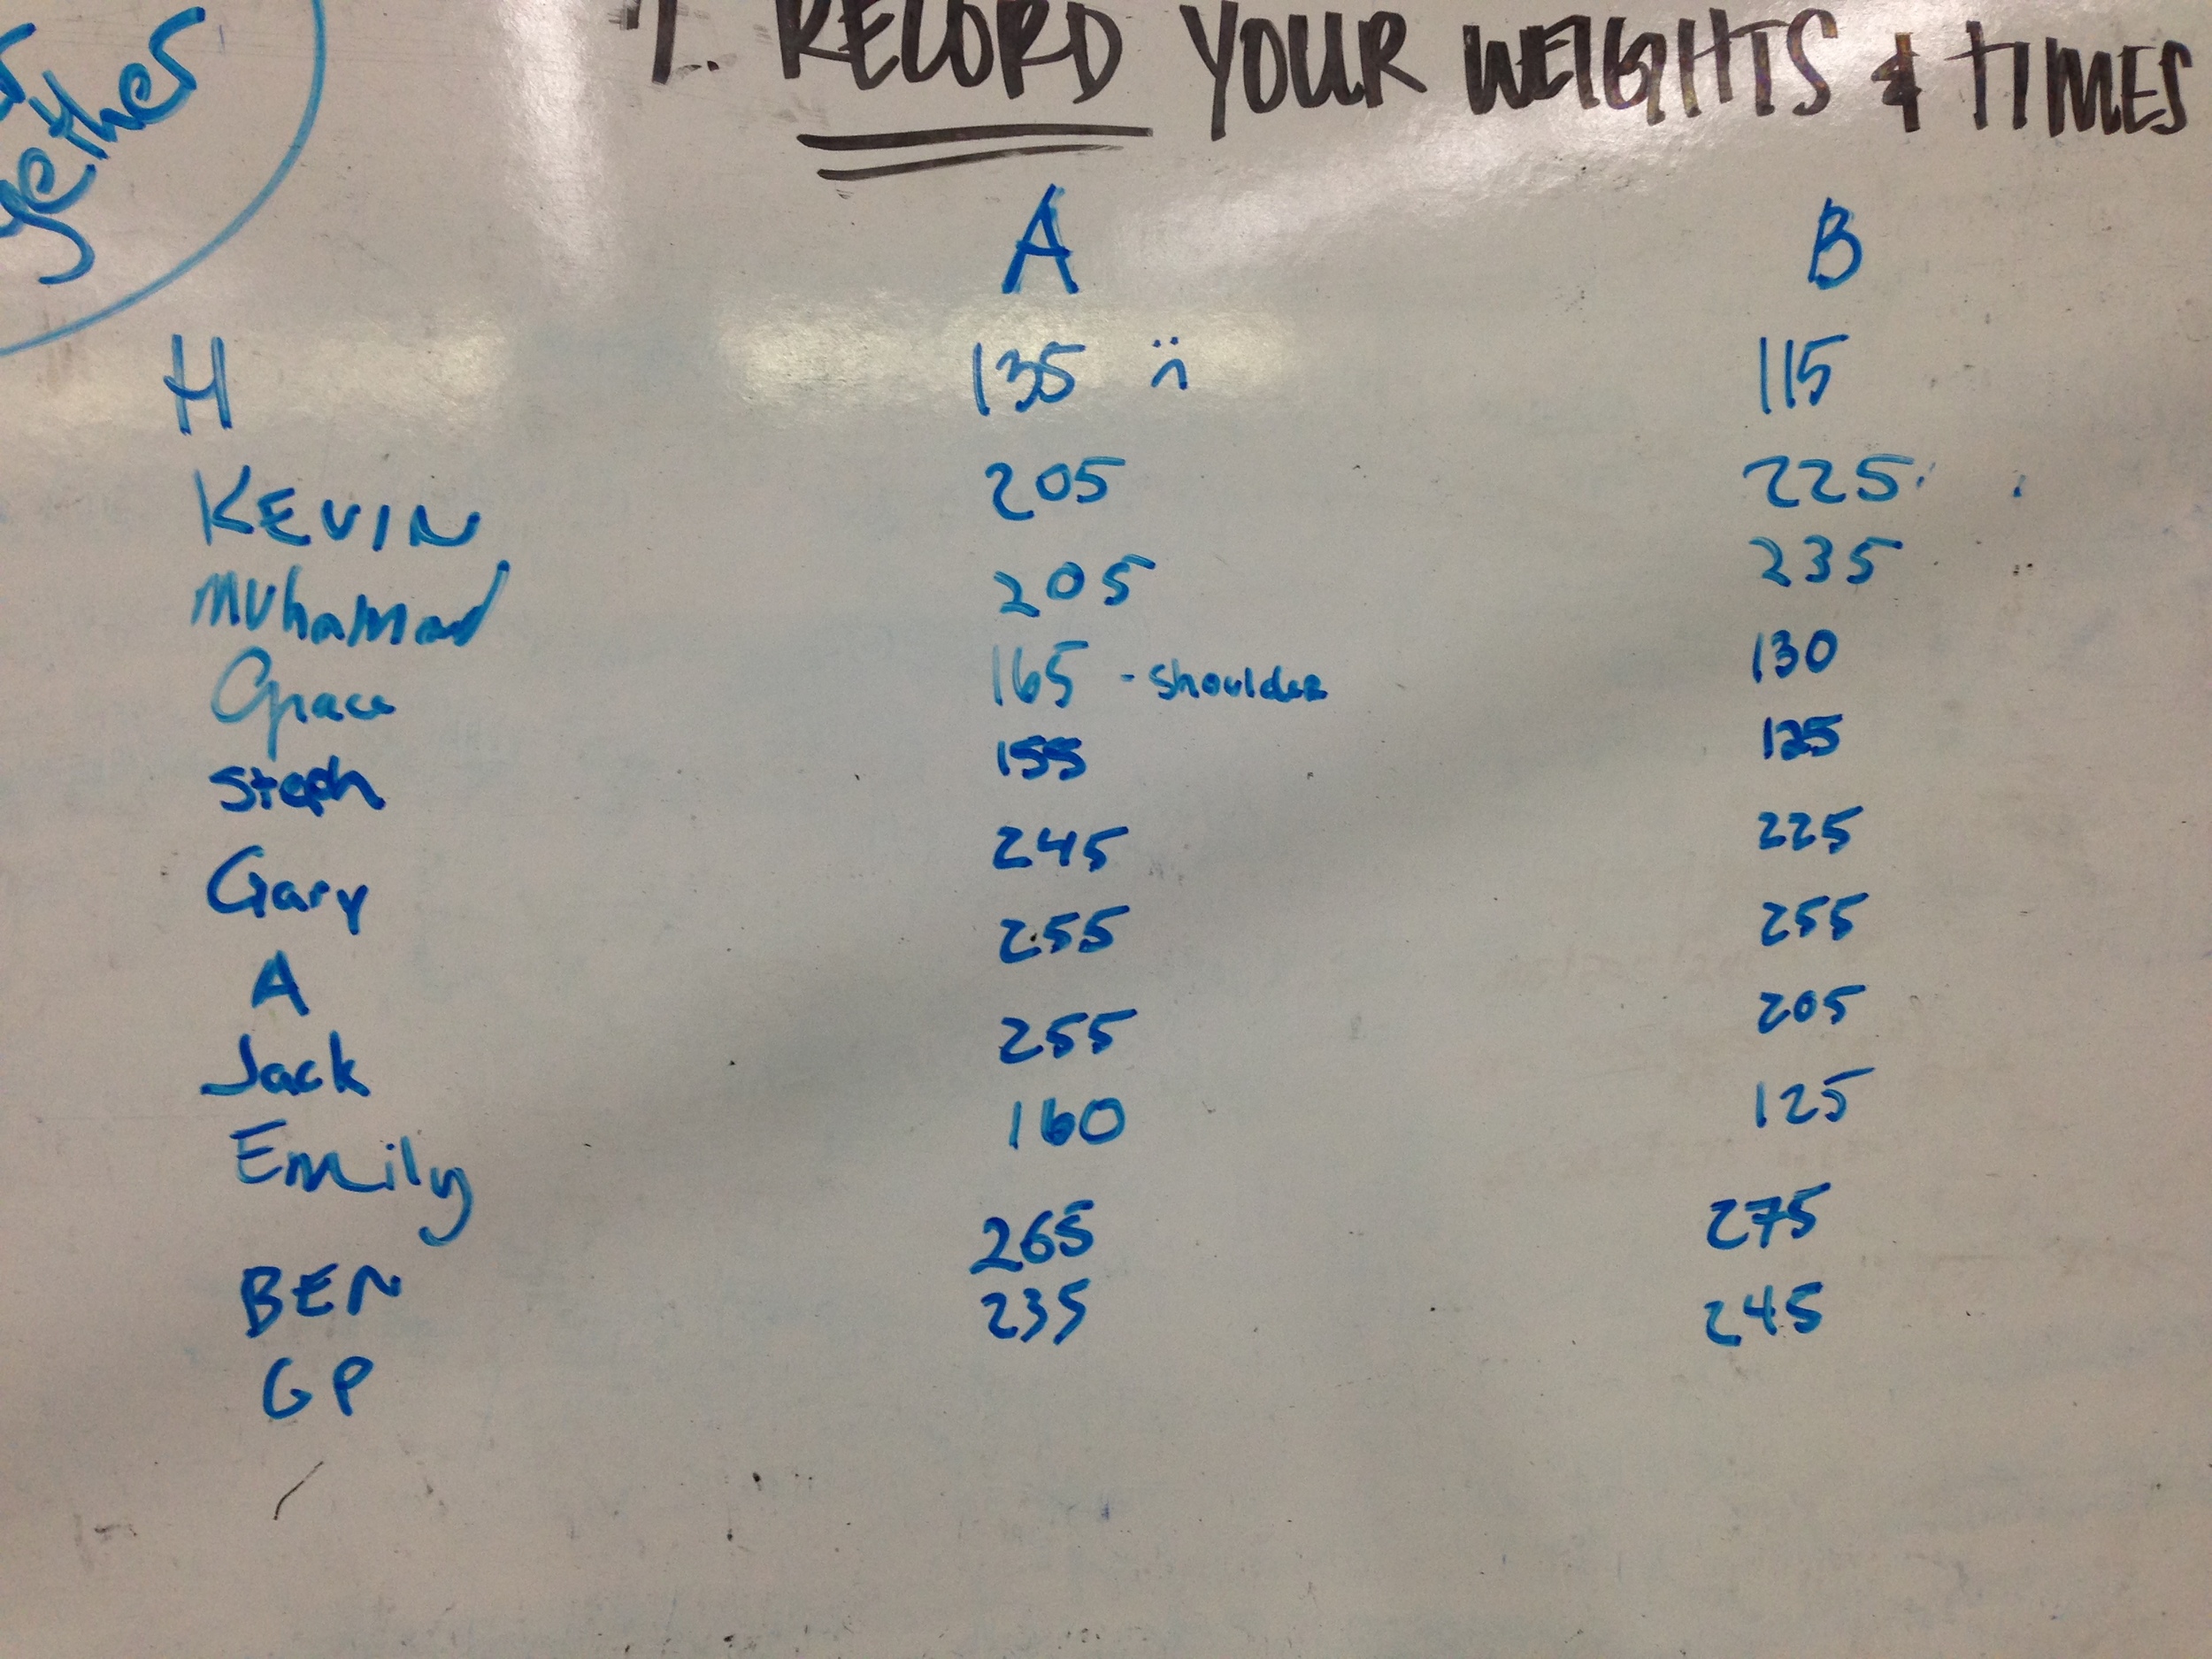 7. RECORD YOUR WEIGHTS & TIMES
gether
A B
H 135 115
KEVIN 205 225
Muhammad 205 235
Grace 165 - shoulder 130
Steph 155 125
Gary 245 225
A 255 255
Jack 255 205
Emily 160 125
BEN 265 275
GP 235 245